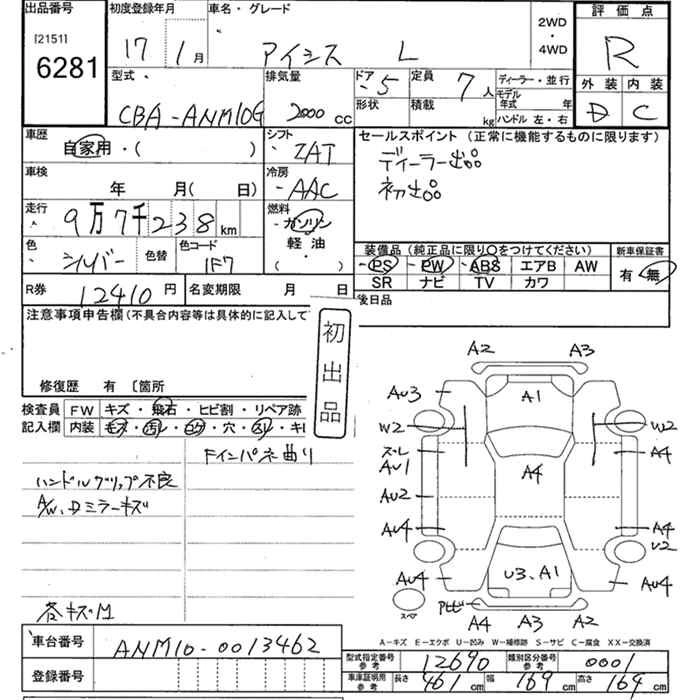 出品番号
[2151]
6281
初度登録年月
17 年 1 月
車名・グレード
アイシス L
2WD
・
4WD
評価点
R
外装 内装
D C
型式
CBA-ANM10G
排気量
2000 cc
ドア 5
形状
定員 7 人
積載 kg
ディーラー・並行
モデル年式 年
ハンドル 左・右
車歴
自家用・( )
シフト
IAT
車検
年 月( 日)
冷房
AAC
走行
9万7千238 km
燃料
ガソリン
軽油
( )
色
シルバー
色替
色コード
1F7
R券
12410 円
名変期限 月 日
セールスポイント(正常に機能するものに限ります)
ディーラー出品
初出品
装備品(純正品に限り○をつけてください)
PS PW ABS エアB AW
SR ナビ TV カワ
新車保証書
有・無
後日品
注意事項申告欄(不具合内容等は具体的に記入して
修復歴 有 〔箇所
初出品
検査員記入欄
FW キズ・飛石・ヒビ割・リペア跡
内装
Fインパネ曲り
ハンドルグリップ不良
A/W、Dミラーキズ
各キズM
A2 A3
AU3 A1
W2 W2
ズレ
AU1 A4 A4
AU2
AU4 A4
U2
AU4 U3、A1 AU4
スペア
A4 A3 A2
A-キズ E-エクボ U-凹み W-補修跡 S-サビ C-腐食 XX-交換済
車台番号
ANM10-0013462
登録番号
型式指定番号 参考
12690
類別区分番号 参考
0001
車庫証明用 参考
長さ 461 cm 幅 169 cm 高さ 164 cm